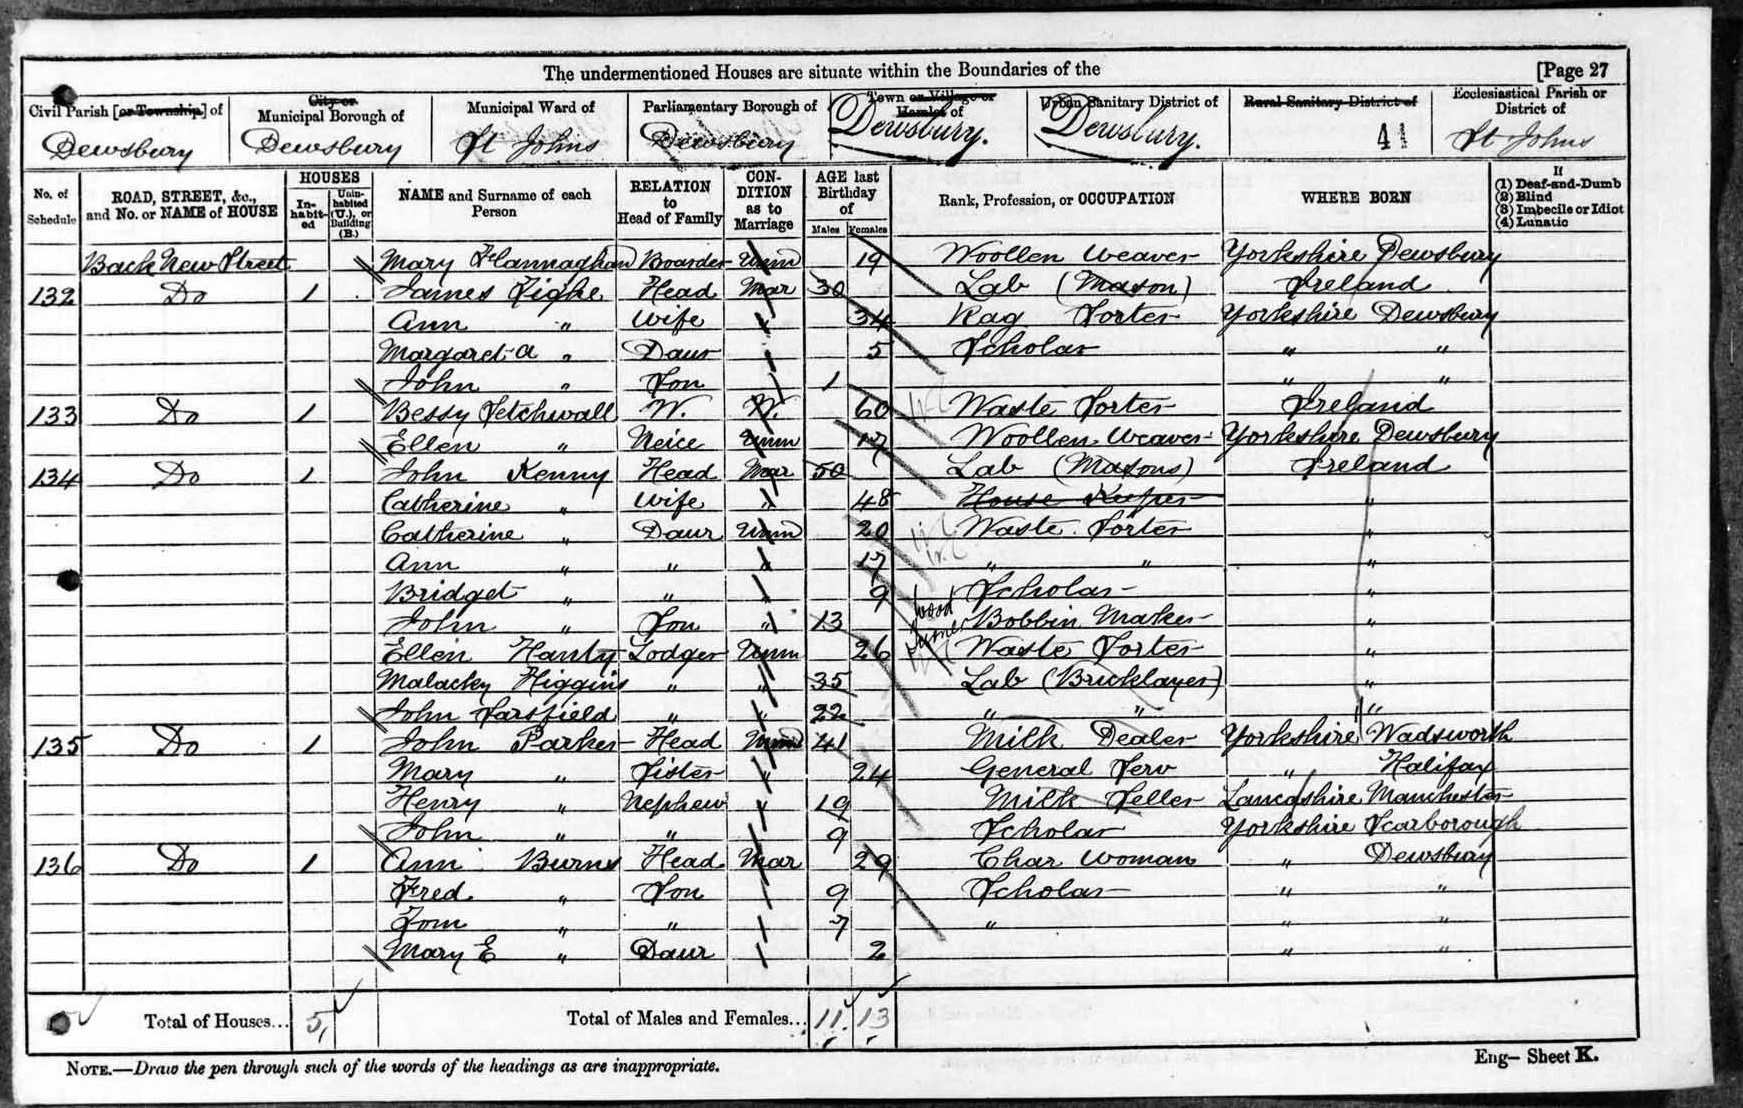 The undermentioned Houses are situate within the Boundaries of the [Page 27
Civil Parish [or Township] of Dewsbury
City or Municipal Borough of Dewsbury
Municipal Ward of St Johns
Parliamentary Borough of Dewsbury
Town or Village or Hamlet of Dewsbury.
Urban Sanitary District of Dewsbury.
Rural Sanitary District of 41
Ecclesiastical Parish or District of St Johns
No. of Schedule
ROAD, STREET, &c., and No. or NAME of HOUSE
HOUSES
In-habit-ed
Unin-habited (U.), or Building (B.)
NAME and Surname of each Person
RELATION to Head of Family
CON-DITION as to Marriage
AGE last Birthday of
Males Females
Rank, Profession, or OCCUPATION
WHERE BORN
If
(1) Deaf-and-Dumb
(2) Blind
(3) Imbecile or Idiot
(4) Lunatic
Back New Street Mary Flannaghan Boarder Unm 19 Woollen Weaver Yorkshire Dewsbury
132 Do 1 James Tighe Head Mar 30 Lab (Mason) Ireland
Ann " Wife " 34 Rag Sorter Yorkshire Dewsbury
Margaret A " Daur 5 Scholar " "
John " Son 1 " "
133 Do 1 Bessy W. W. 60 Waste Sorter Ireland
Ellen " Neice Unm 17 Woollen Weaver Yorkshire Dewsbury
134 Do 1 John Kenny Head Mar 50 Lab (Masons) Ireland
Catherine " Wife " 48 House Keeper "
Catherine " Daur Unm 20 Waste Sorter "
Ann " " " 17 " " "
Bridget " " " 9 Scholar "
John " Son " 13 Wood Turner Bobbin Maker "
Ellen Hanly Lodger Unm 26 Waste Sorter "
Malachy Higgins " " 35 Lab (Bricklayer) "
John Sarsfield " " 22 " " "
135 Do 1 John Parker Head Unm 41 Milk Dealer Yorkshire Wadsworth
Mary " Sister " 24 General Serv " Halifax
Henry " Nephew " 19 Milk Seller Lancashire Manchester
John " " 9 Scholar Yorkshire Scarborough
136 Do 1 Ann Burns Head Mar 29 Char Woman " Dewsbury
Fred " Son 9 Scholar " "
Tom " " 7 " " "
Mary E " Daur 2 " "
Total of Houses... 5 Total of Males and Females... 11 13
NOTE.—Draw the pen through such of the words of the headings as are inappropriate.
Eng— Sheet K.